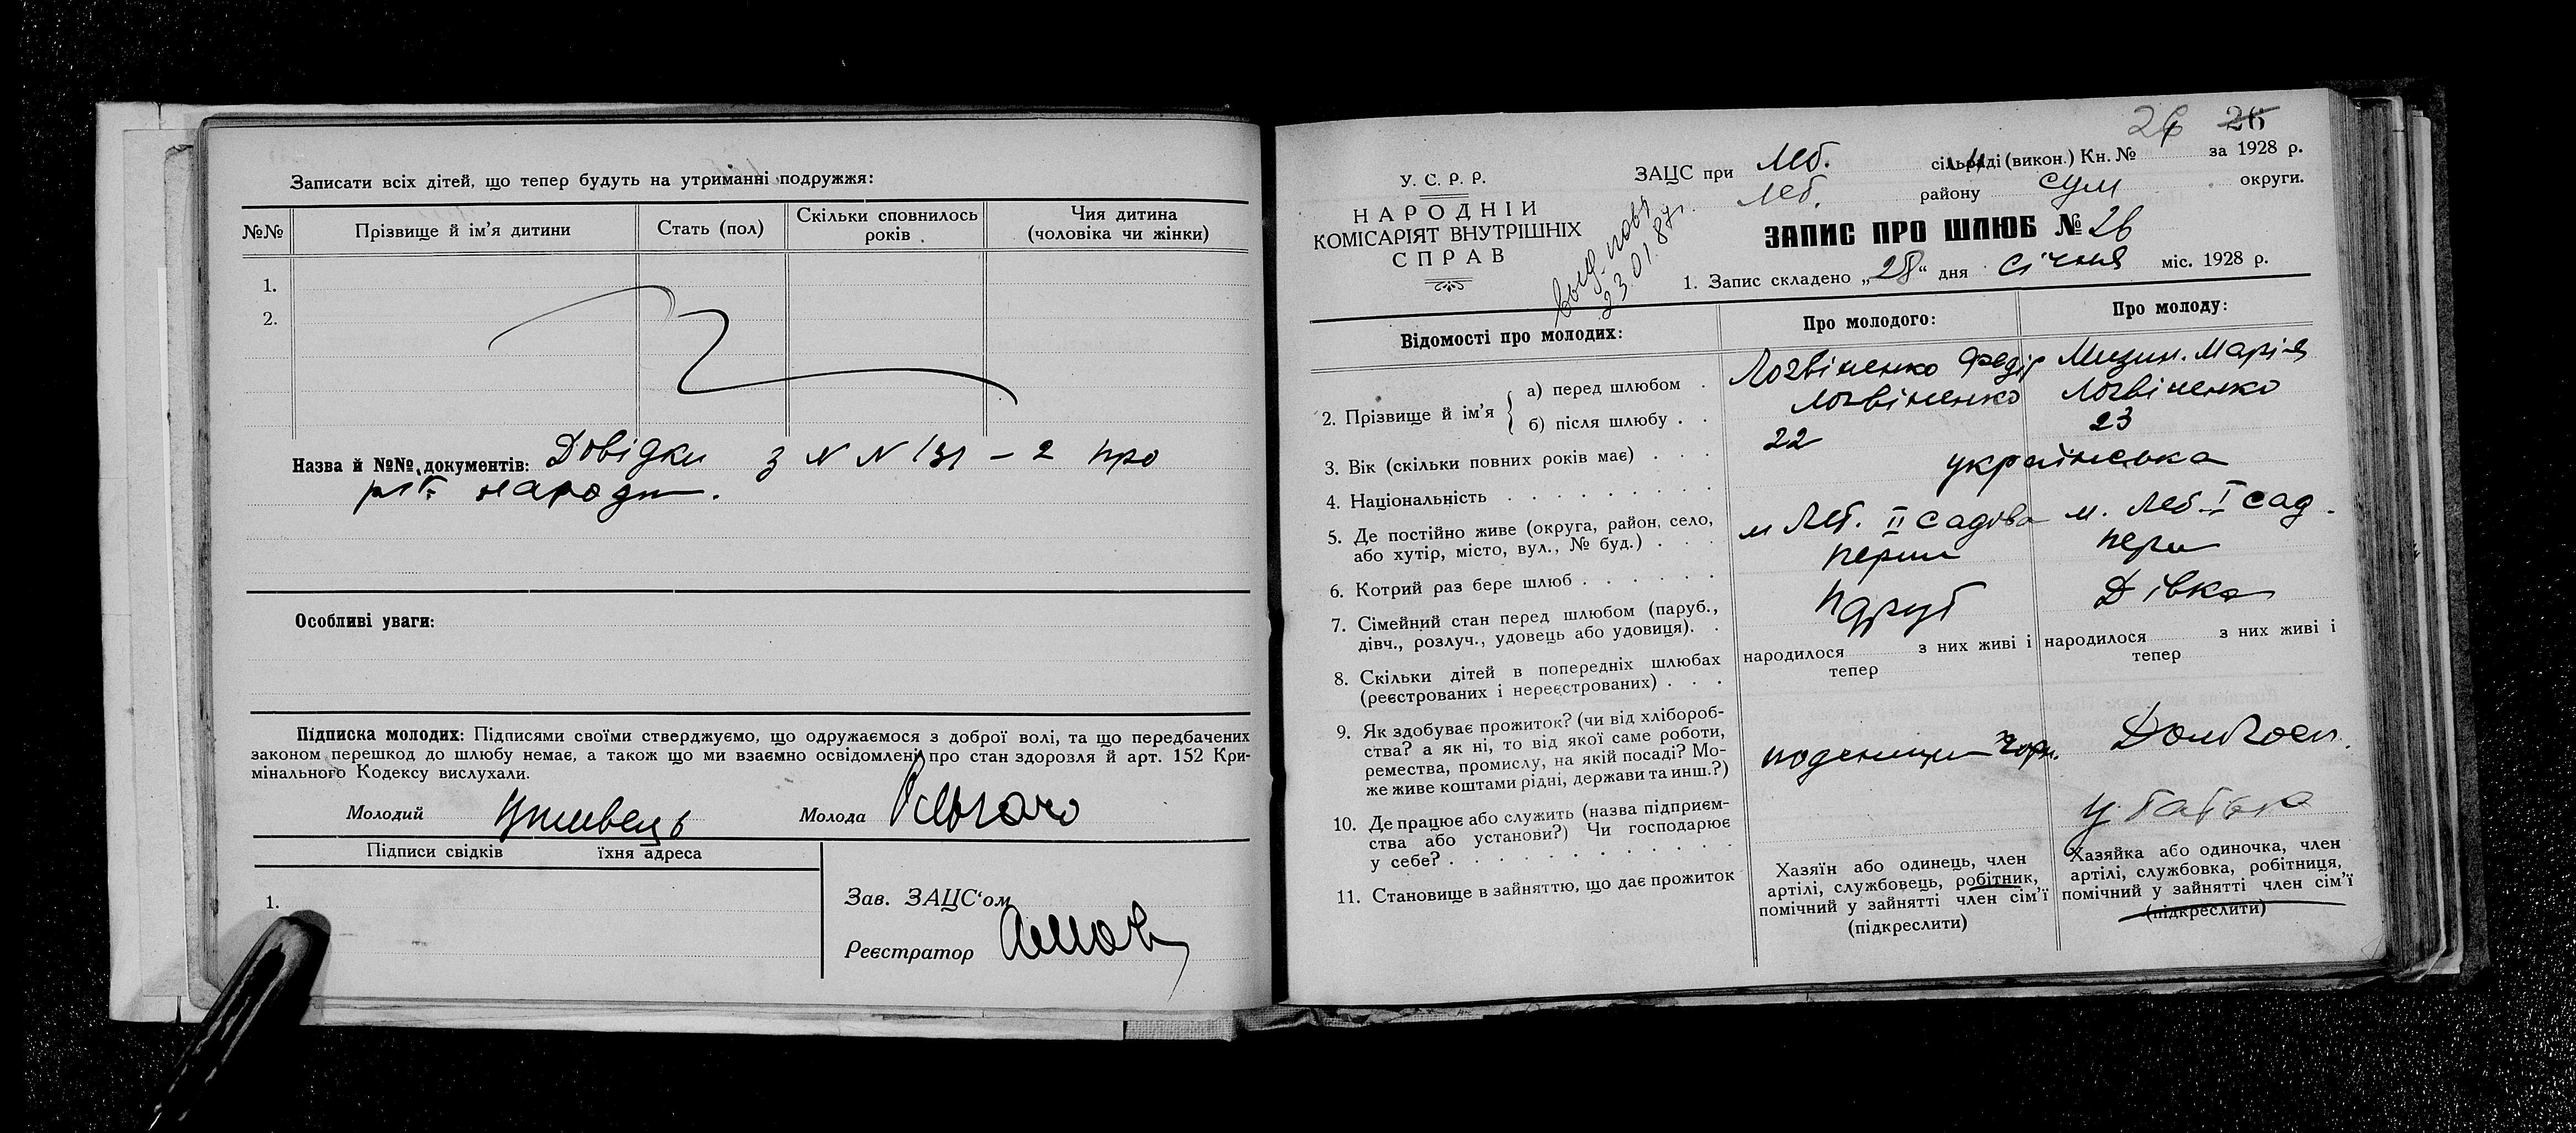 Записати всіх дітей, що тепер будуть на утриманні подружжя:
№№ Прізвище й ім'я дитини Стать (пол) Скільки сповнилось років Чия дитина (чоловіка чи жінки)
1.
2.
Назва й №№ документів: Довідки з N N 131 – 2 про
рік народж.
Особливі уваги:
Підписка молодих: Підписями своїми стверджуємо, що одружаємося з доброї волі, та що передбачених
законом перешкод до шлюбу немає, а також що ми взаємно освідомлені про стан здоровля й арт. 152 Кри-
мінального Кодексу вислухали.
Молодий Молода
Підписи свідків їхня адреса
1.
Зав. ЗАЦС'ом
Реєстратор
26 26
У. С. Р. Р.
НАРОДНІЙ
КОМІСАРІЯТ ВНУТРІШНІХ
СПРАВ
23.01.87г.
ЗАЦС при Леб. сільраді (викон.) Кн. № за 1928 р.
Леб. району Сум округи.
ЗАПИС ПРО ШЛЮБ № 26
1. Запис складено „28“ дня Січня міс. 1928 р.
Відомості про молодих: Про молодого: Про молоду:
2. Прізвище й ім'я
а) перед шлюбом . Логвіненко Федір Мизин. Марія
б) після шлюбу . . Логвіненко Логвіненко
3. Вік (скільки повних років має) . . . 22 23
4. Національність українська
5. Де постійно живе (округа, район, село,
або хутір, місто, вул., № буд.) . . . м Леб. II Садова м. Леб. I Сад.
6. Котрий раз бере шлюб . . . . . . перши перш
7. Сімейний стан перед шлюбом (паруб.,
дівч., розлуч., удовець або удовиця). . паруб Дівка
8. Скільки дітей в попередніх шлюбах
(реєстрованих і нереєстрованих) . . .
народилося з них живі і
тепер
народилося з них живі і
тепер
9. Як здобуває прожиток? (чи від хлібороб-
ства? а як ні, то від якої саме роботи,
ремества, промислу, на якій посаді? Мо-
же живе коштами рідні, держави та инш.?)
Домгосп.
10. Де працює або служить (назва підприєм-
ства або установи?) Чи господарює
у себе?
у батька
11. Становище в зайняттю, що дає прожиток
Хазяїн або одинець, член
артілі, службовець, робітник,
помічний у зайнятті член сім'ї
(підкреслити)
Хазяйка або одиночка, член
артілі, службовка, робітниця,
помічний у зайнятті член сім'ї
(підкреслити)